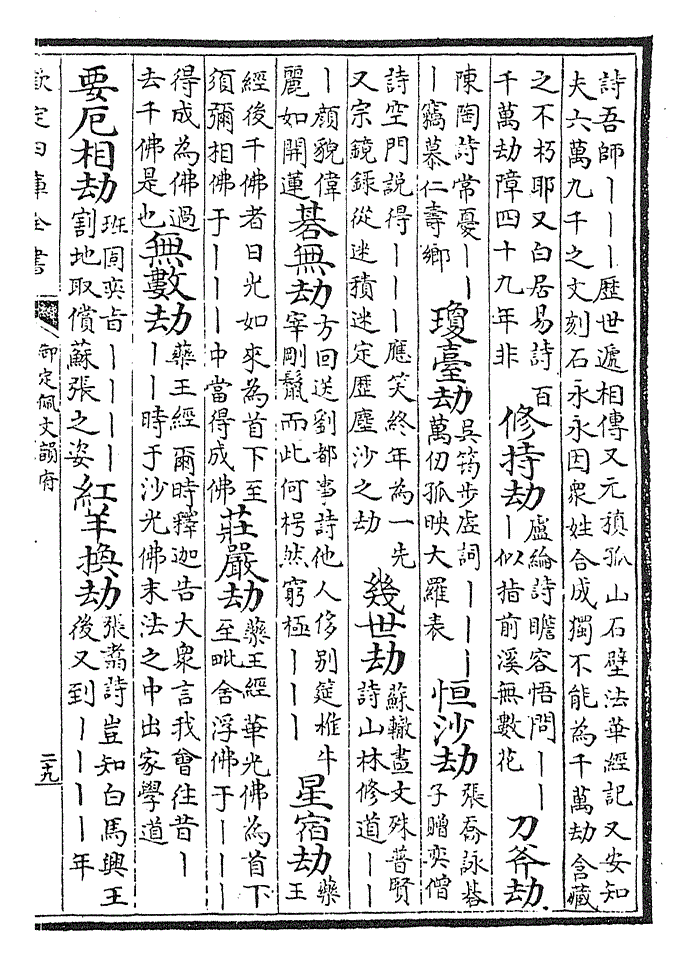 詩吾師｜｜｜歷世遞相傳又元稹孤山石壁法華經記又安知
夫六萬九千之文刻石永永因衆姓合成獨不能為千萬劫含藏
之不朽耶又白居易詩百
千萬劫障四十九年非
修持劫
盧綸詩瞻容悟問｜｜
｜似指前溪無數花
刀斧劫
陳陶詩常憂｜｜
｜竊慕仁壽鄉
瓊臺劫
吳筠步虛詞｜｜｜
萬仞孤映大羅表
恒沙劫
張喬詠碁
子贈奕僧
詩空門說得｜｜｜應笑終年為一先
又宗鏡錄從迷積迷定歷塵沙之劫
幾世劫
蘇轍畫文殊普賢
詩山林修道｜｜
｜顔貌偉
麗如開蓮
碁無劫
方回送劉都事詩他人侈別筵椎牛
宰剛鬛而此何枵然窮極｜｜｜
星宿劫
藥
王
經後千佛者日光如來為首下至
須彌相佛于｜｜｜中當得成佛
莊嚴劫
藥王經華光佛為首下
至毗舍浮佛于｜｜｜
得成為佛過
去千佛是也
無數劫
藥王經爾時釋迦告大衆言我曾往昔｜
｜｜時于沙光佛末法之中出家學道
要厄相劫
班固奕旨｜｜｜｜
割地取償蘇張之姿
紅羊換劫
張翥詩豈知白馬興王
後又到｜｜｜｜年
欽定四庫全書
御定佩文韻府
二十九